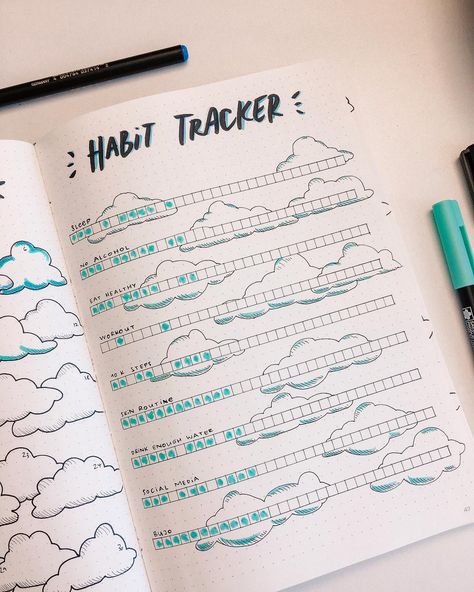 HABIT TRACKER
SLEEP
NO ALCOHOL
EAT HEALTHY
WORKOUT
10 K STEPS
SKIN ROUTINE
DRINK ENOUGH WATER
SOCIAL MEDIA
BUJO